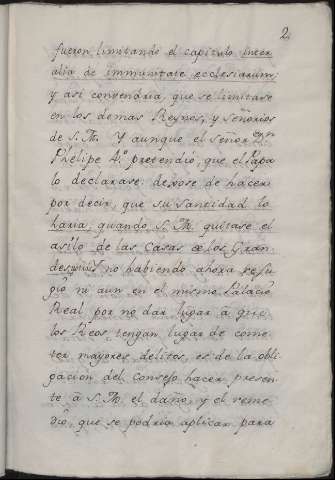 2
fueron limitando el capitulo Inter
alia de immunitate ecclesiarum;
y asi convendria, que se limitase
en los demas Reynos, y Señorios
de S. M. Y aunque el señor Dn
Phelipe 4º pretendió, que el Papa
lo declarase dexose de hacer
por decir, que su santidad lo
haria, quando S. M. quitase el
asilo de las Casas de los Gran
des no habiendo ahora refu
gio ni aun en el mismo Palacio
Real por no dar lugar à que
los Reos tengan lugar de come
ter mayores delitos, es de la obli
gacion del Consejo hacer presen
te à S. M. el daño, y el reme
dio, que se podria aplicar para